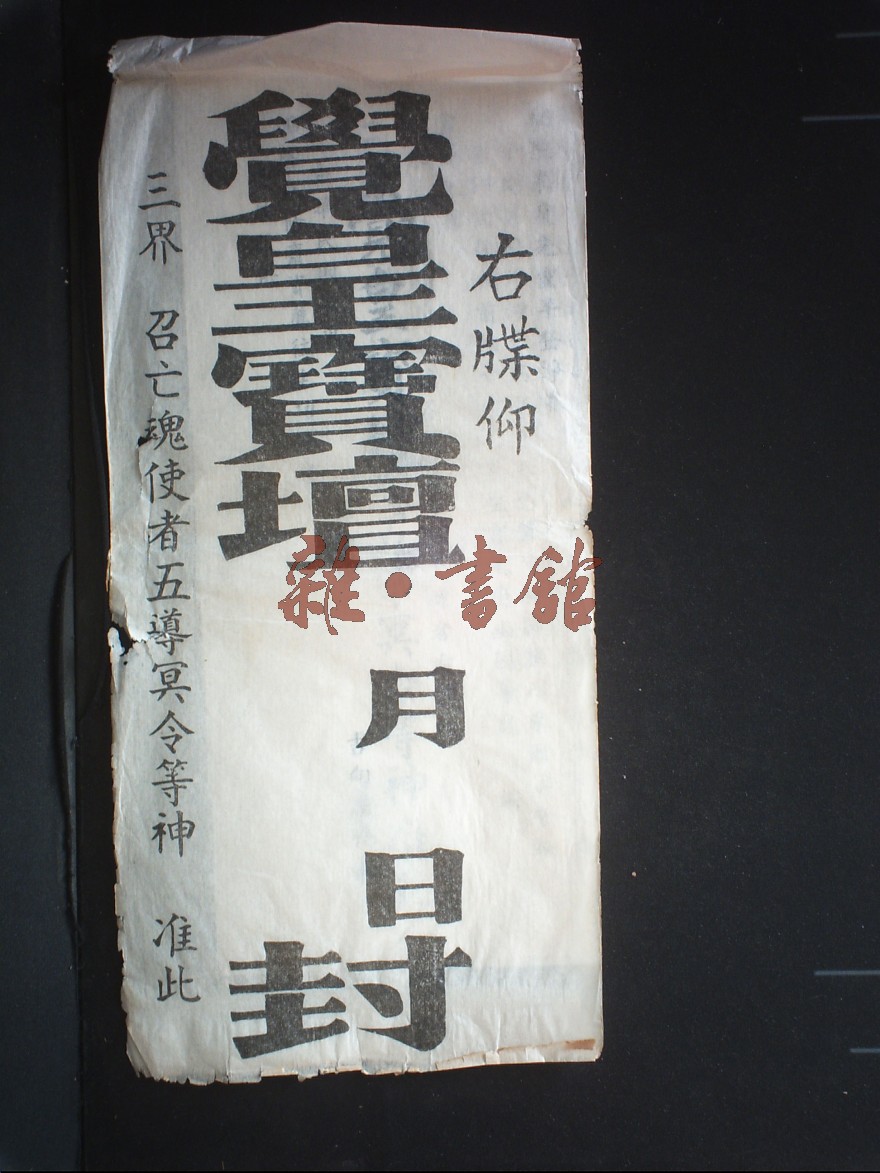 右牒仰
覺皇寶壇
月 日
封
三界 召亡魂使者五導冥令等神 准此
雜·書館